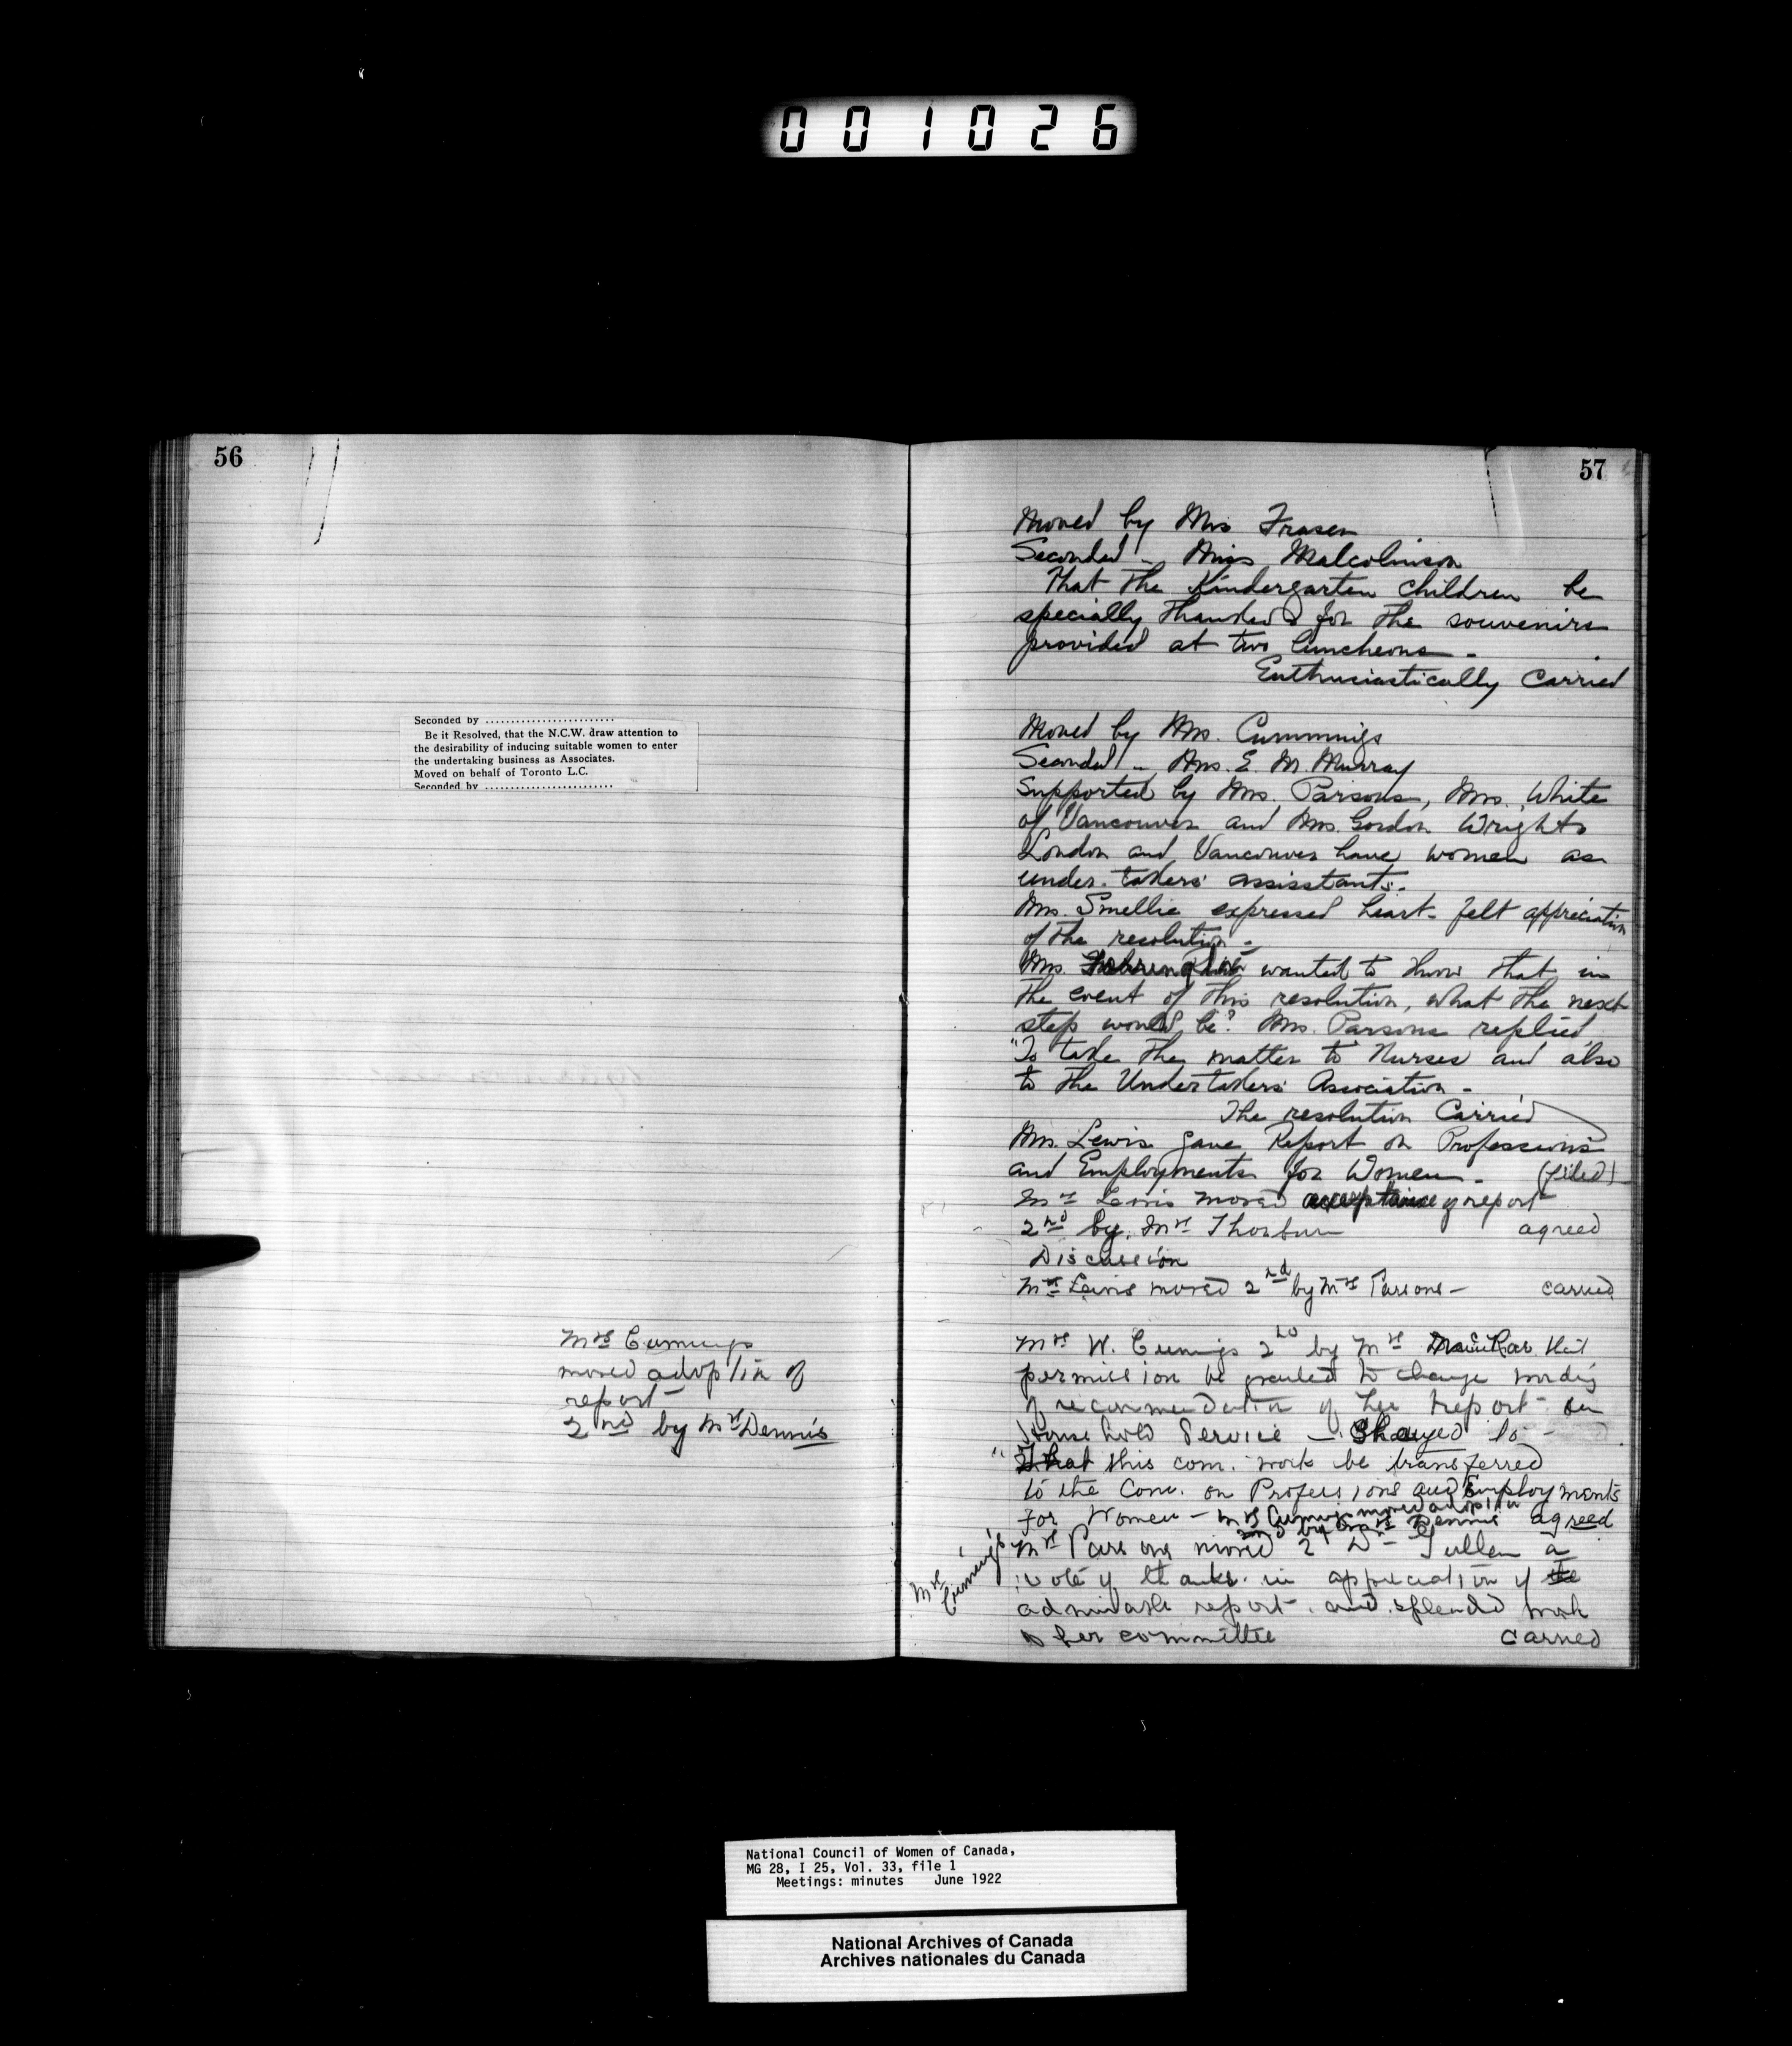 001026
56
Seconded by ..........................
Be it Resolved, that the N.C.W. draw attention to
the desirability of inducing suitable women to enter
the undertaking business as Associates.
Moved on behalf of Toronto L.C.
Seconded by ..........................
Mrs Cumings
moved adoption of
report
2nd by Mrs Dennis
57
Moved by Mrs Fraser
Seconded " Miss Malcolmson
That the Kindergarten children be
specially thanked for the souvenirs
provided at two luncheons -
Enthusiastically Carried
Moved by Mrs. Cummings
Seconded " Mrs. E. M. Murray
Supported by Mrs. Parsons, Mrs. White
of Vancouver and Mrs. Gordon Wright
London and Vancouver have women as
under-takers' assisstants.
Mrs. Smellie expressed heart-felt appreciation
of the resolution -
Mrs. wanted to know that in
the event of this resolution, what the next
step would be? Mrs. Parsons replied
"To take the matter to Nurses and also
to the Undertakers' Association -
The resolution Carried
Mrs. Lewis gave Report on Professions
and Employments for Women - (filed)
Mrs Lewis moved acceptance of report
2nd by Mrs Thorburn agreed
Discussion
Mrs Lewis moved 2nd by Mrs Parsons - carried
Mrs W. Cumings 2nd by Mrs that
permission be granted to change wording
of recommendation of her report on
Household Service - Changed to -
"That this com. work be transferred
to the Com. on Professions and Employments
for Women - Mrs Cumings moved adoption
2nd by Mrs Dennis agreed
Mrs Cumings
Mrs Parsons moved 2d Dr - Tullen a
vote of thanks in appreciation of the
admirable report and splendid work
of her committee carried
National Council of Women of Canada,
MG 28, I 25, Vol. 33, file 1
Meetings: minutes June 1922
National Archives of Canada
Archives nationales du Canada